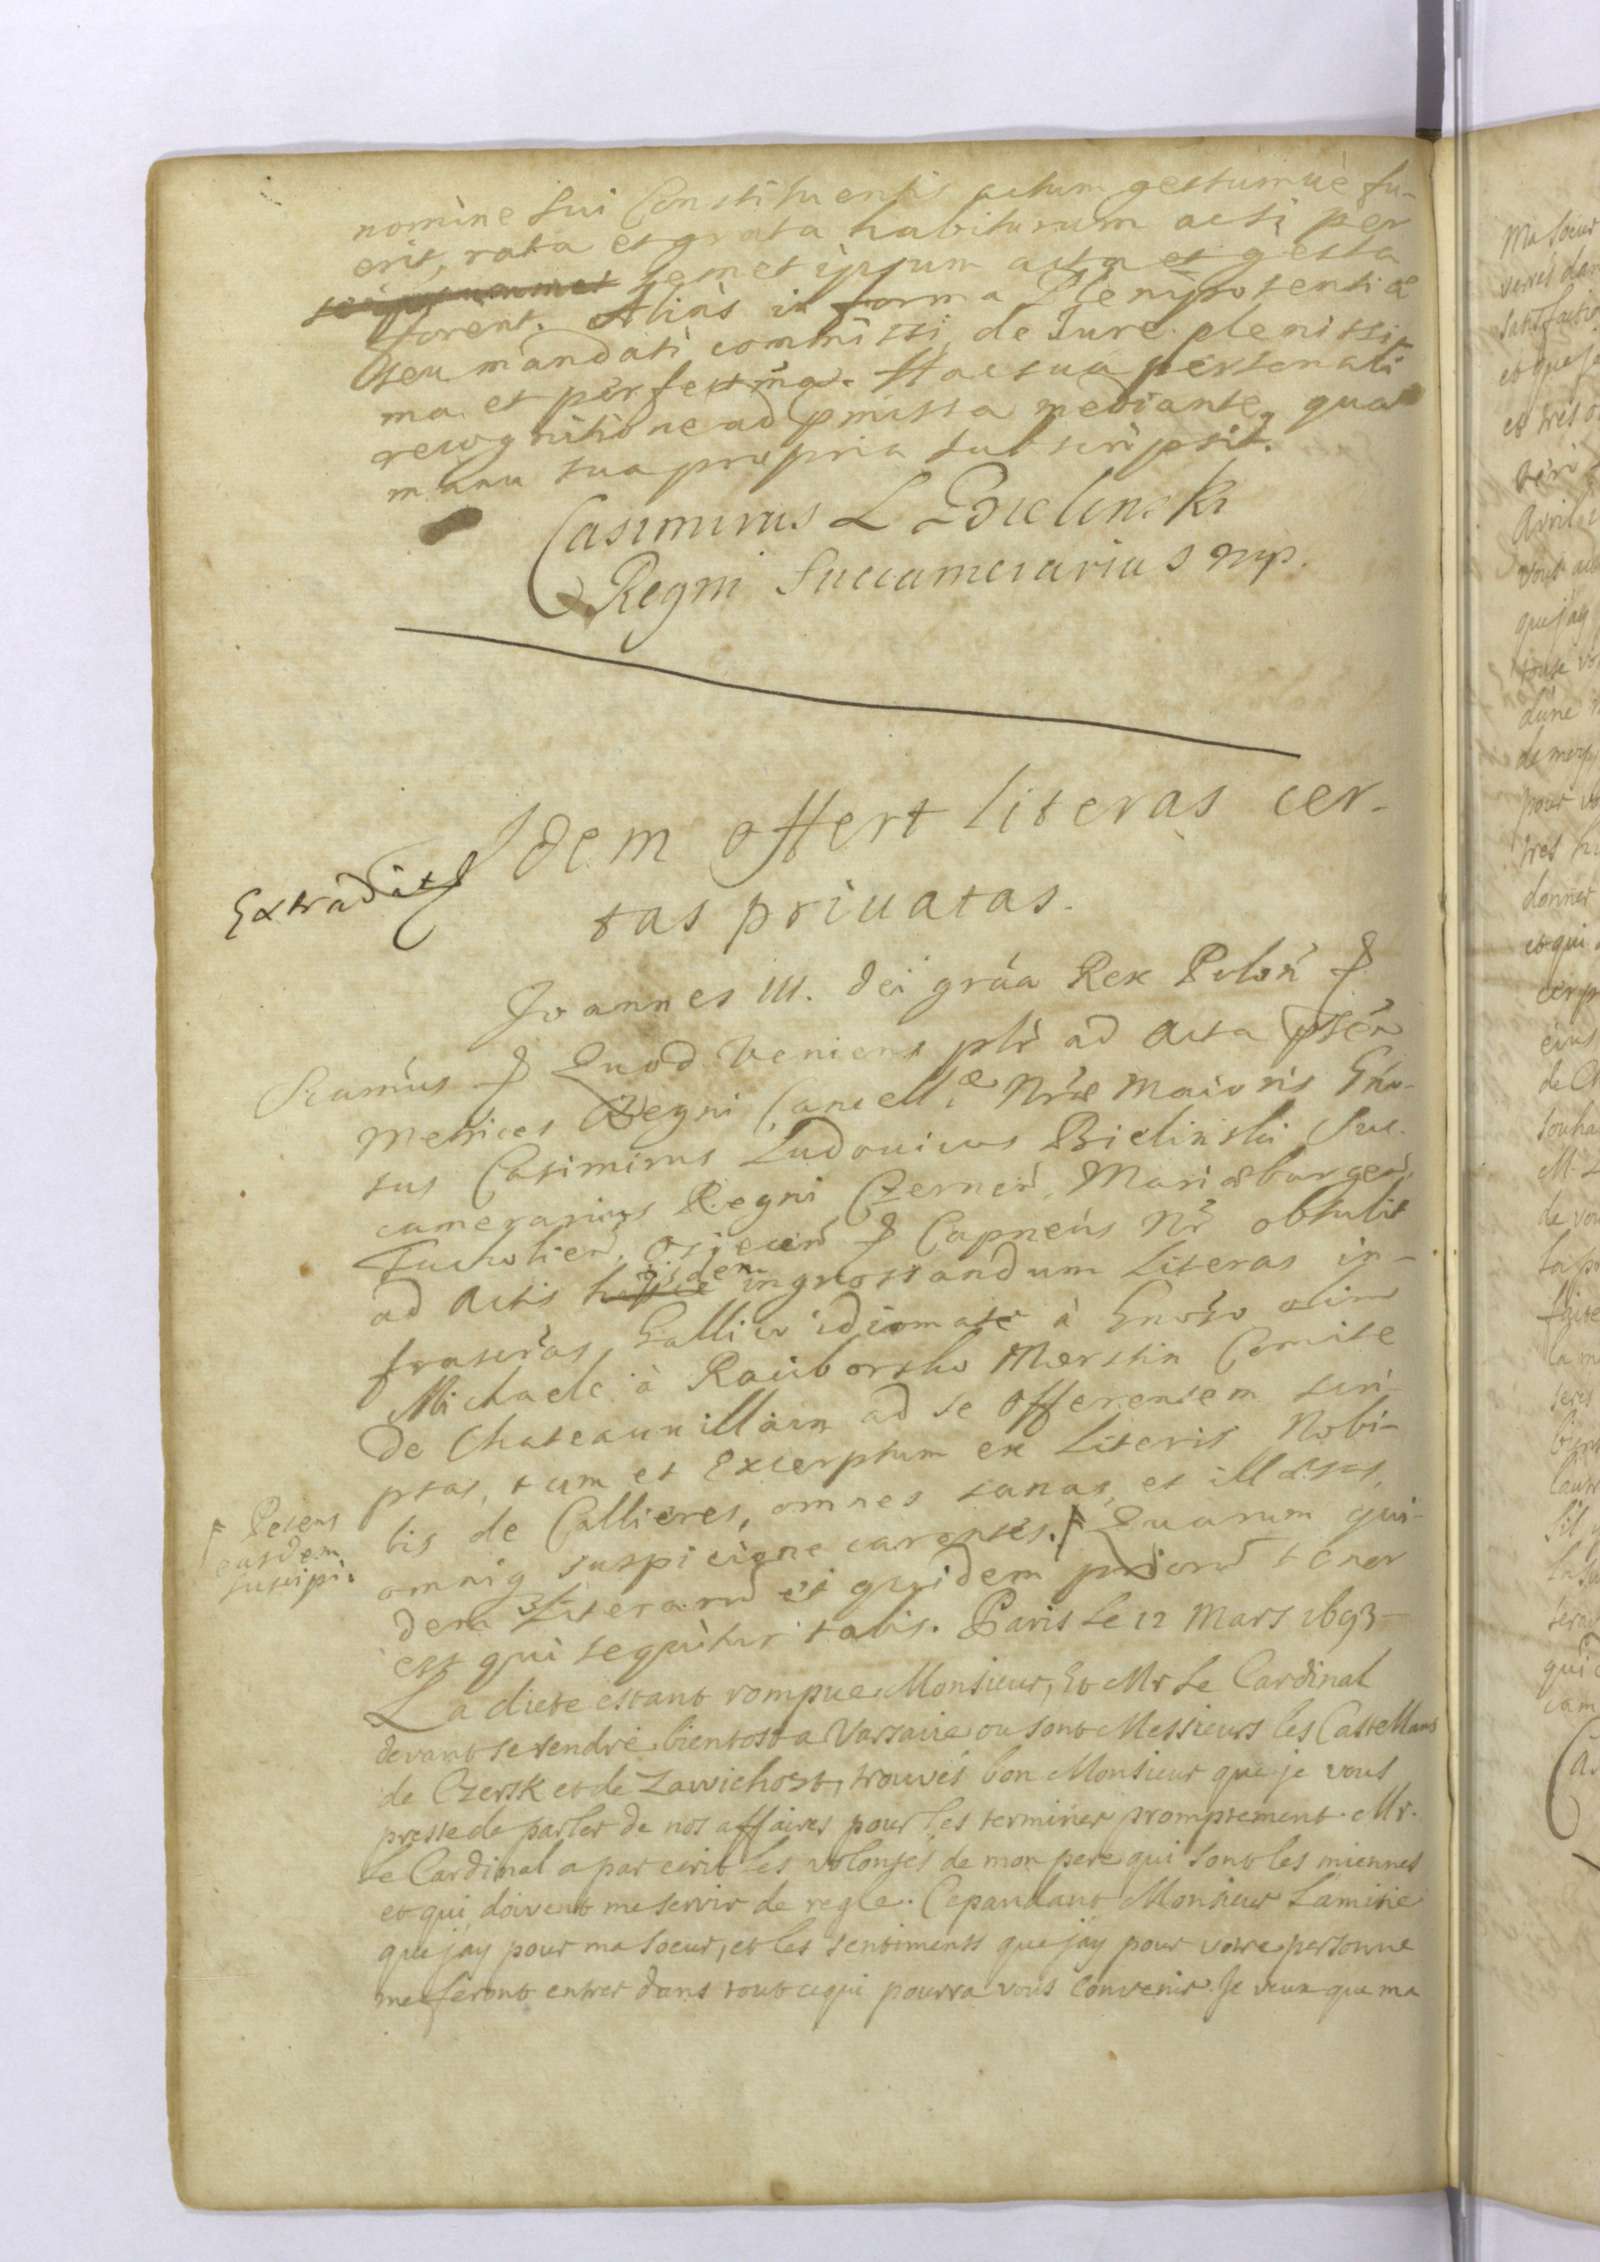 nomine sui Constituentis actum gestumuè fu-
erit, rata et grata habiturum acsi per
semet ipsum acta et gesta
forent. Aliàs in forma Plenipotentiæ
seu mandati commissi, de Iure plenissi-
ma et perfectma. Hac sua personali
recognitione ad pmissa mediante, qua
manu sua propria subscripsit.
Casimirus L Bielinski
Regni Succamerarius mp.
Idem offert literas cer-
Extradit
tas priuatas.
Joannes III. dei gráa Rex Polon
Quod veniens plr ad Acta psen
Metrices Regni Cancell.æ Nræ Maioris Gno-
sus Casimirus Ludouicus Bielinski Suc-
camerarius Regni Czernen, Mariæburgen,
Tucholien, Osiecen Capneus Nr obtulit
ad Actis iisdem ingrossandum Literas in-
frascras, Gallico idiomate à Gnoso olim
Michaele à Raciborsko Morstin Comite
de Chateauuillain ad se offerentem scri-
ptas, tum et Excerptum ex Literis Nobi-
lis de Callieres, omnes sanas, et illæsas,
omniq suspicione carentes. Quarum qui-
Petens
easdem
suscipi.
dem Literarũ et quidem priorũ tenor
est qui sequitur talis. Paris le 12 Mars 1693
La diete estant rompue Monsieur, Et Mr Le Cardinal
devant se rendre bientost a Varsavie ou sont Messieurs les Castellans
de Czersk et de Zawichost, trouvés bon Monsieur que je vous
presse de parler de nos affaires pour les terminer promptement. Mr.
le Cardinal a par ecrit les volontés de mon pere qui sont les miennes
et qui doivent me servir de regle. Cepandant Monsieur Lamitie
que jay pour ma soeur, et les sentiments que jay pour votre personne
me feront entrer dans tout cequi pourra vous convenir. Je veux que ma